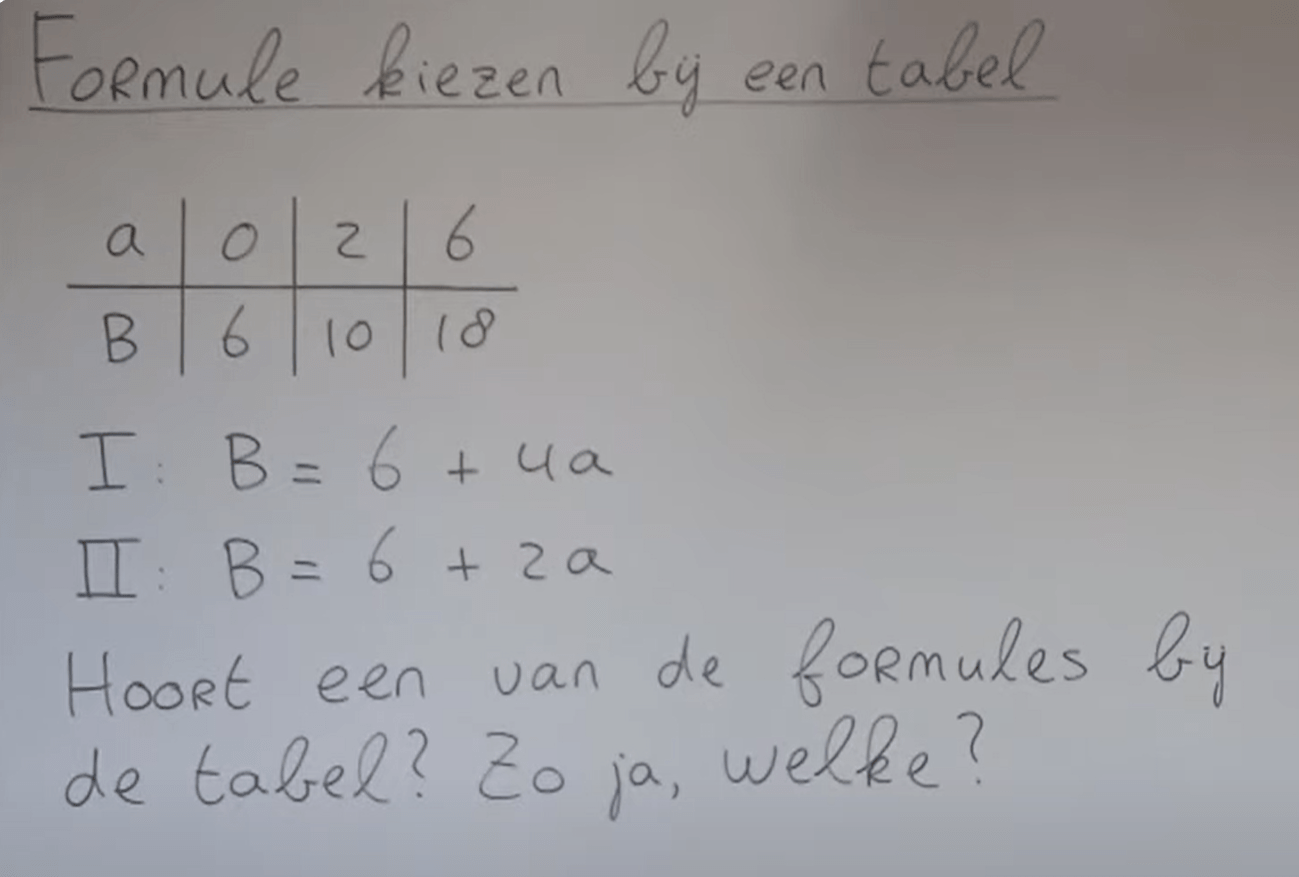 Formule kiezen bij een tabel
a | 0 | 2 | 6
B | 6 | 10 | 18
I: B = 6 + 4a
II: B = 6 + 2a
Hoort een van de formules bij
de tabel? Zo ja, welke?